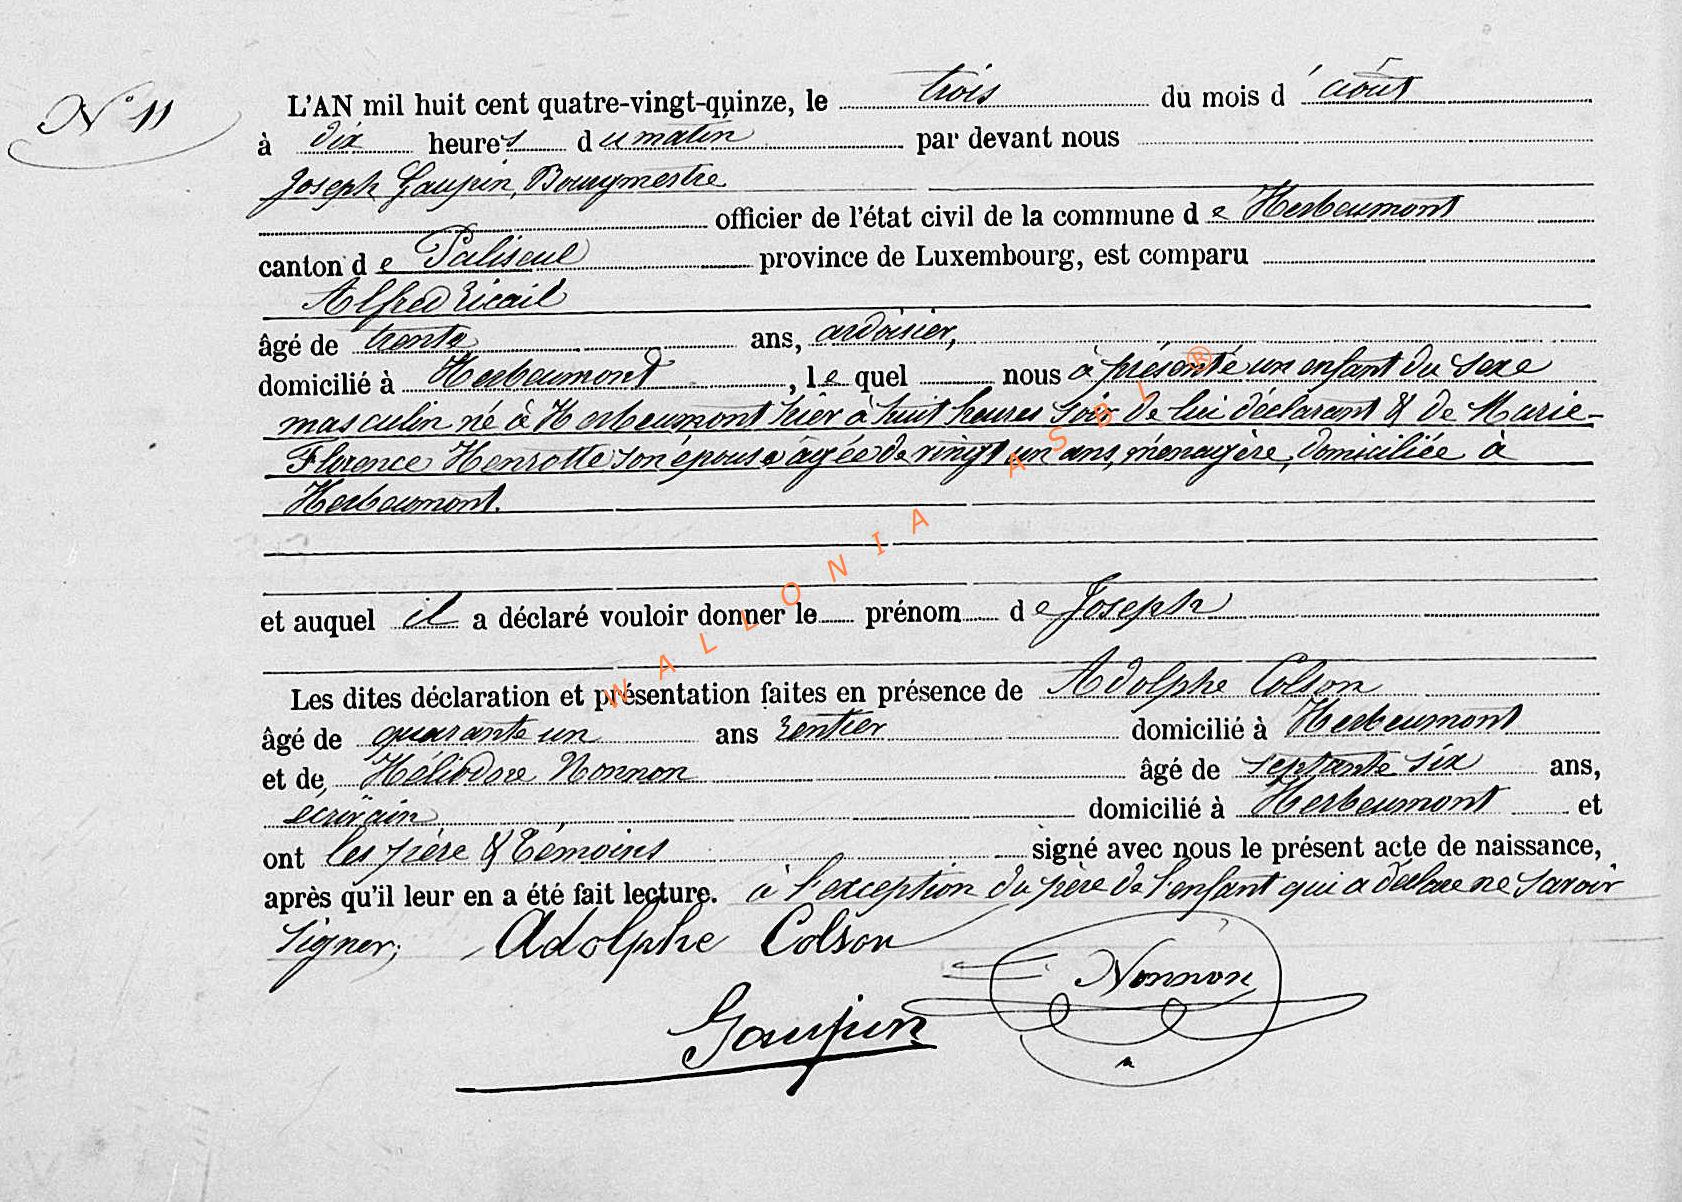 N° 11
L'AN mil huit cent quatre-vingt-quinze, le trois du mois d'août
à dix heures du matin par devant nous
Joseph Gaupin, Bourgmestre
officier de l'état civil de la commune de Herbeumont
canton de Paliseul province de Luxembourg, est comparu
Alfred Zicail
âgé de trente ans, ardoisier,
domicilié à Herbeumont, lequel nous à présenté un enfant du sexe
masculin né à Herbeumont hier à huit heures soir de lui déclarant & de Marie-
Florence Henrotte son épouse âgée de vingt un ans, ménagère, domiciliée à
Herbeumont.
et auquel il a déclaré vouloir donner le prénom de Joseph
Les dites déclaration et présentation faites en présence de Adolphe Colson
âgé de quarante un ans rentier domicilié à Herbeumont
et de, Héliodore Nonnon âgé de septante six ans,
écrivain domicilié à Herbeumont et
ont les père & témoins signé avec nous le présent acte de naissance,
après qu'il leur en a été fait lecture. à l'exception du père de l'enfant qui a déclaré ne savoir
signer;
Adolphe Colson
Nonnon
Gaupin
WALLONIA ASBL ®